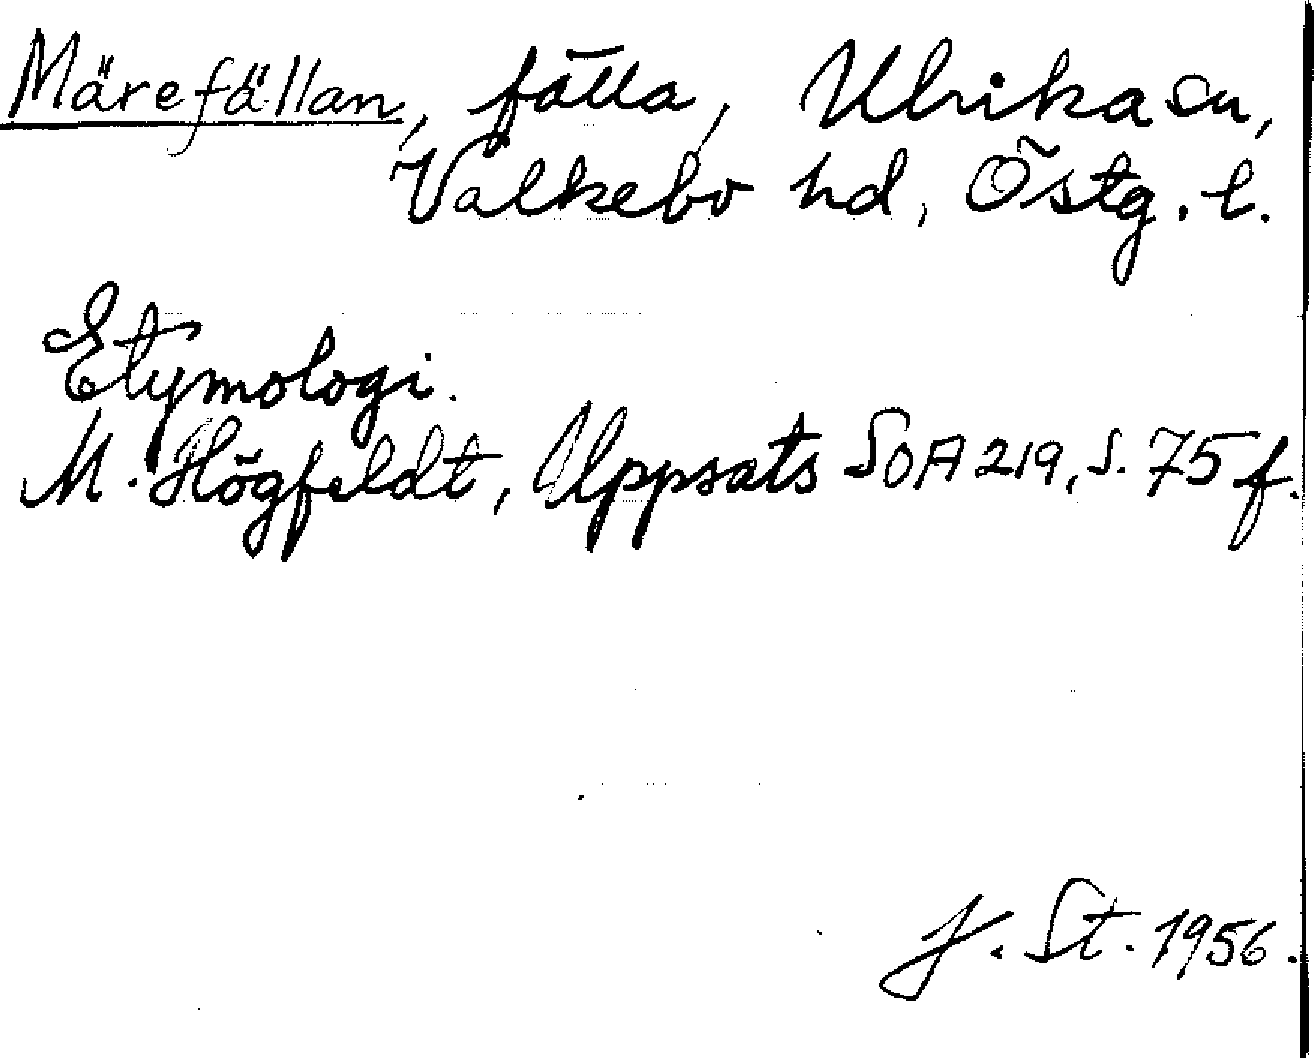 Märefällan, fälla, Ulrika sn,
Valkebo hd, Östg. l.
Etymologi.
M. Högfeldt, Uppsats SOA 219, s. 75 f.
J. St. 1956.